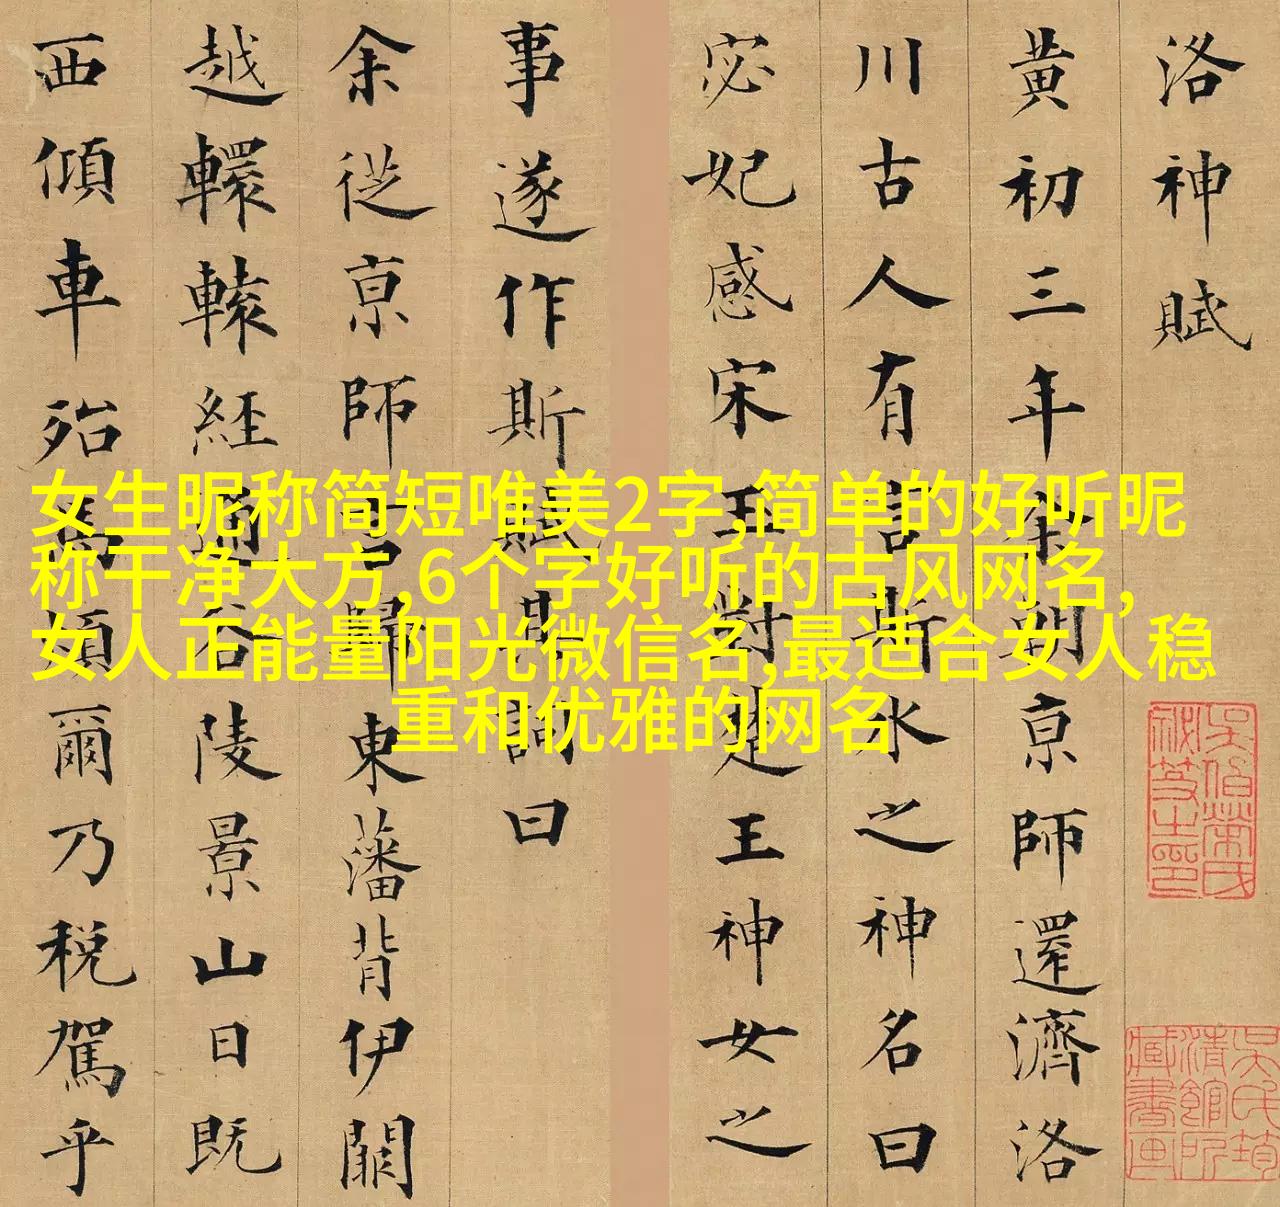 洛神賦
黄初三年余朝京師還濟洛
川古人有言斯水之神名曰
宓妃感宋玉對楚王神女之
事遂作斯賦其詞曰
余從京師言歸東藩背伊闕
越轘轅經通谷陵景山日既
西傾車殆馬煩爾乃稅駕乎
女生昵称简短唯美2字,简单的好听昵
称干净大方,6个字好听的古风网名,
女人正能量阳光微信名,最适合女人稳
重和优雅的网名
吳氏筠
清館所
藏書画